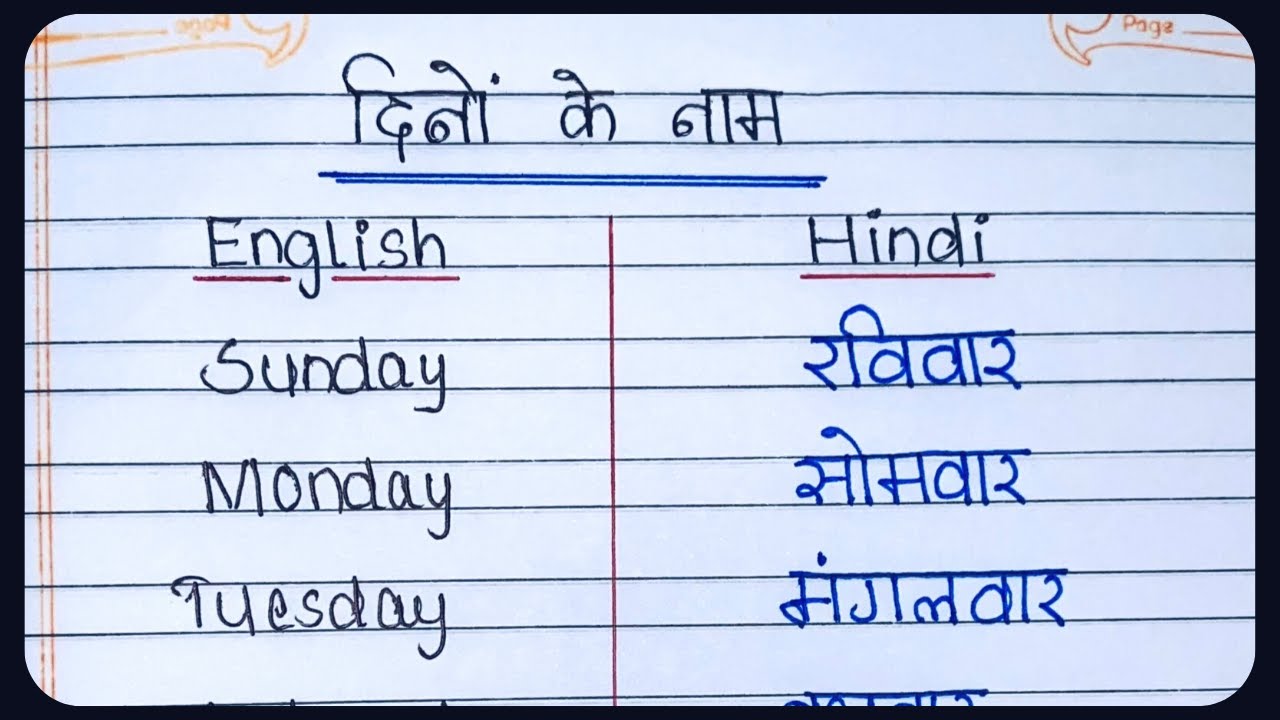 Page
दिनों के नाम
English Hindi
Sunday रविवार
Monday सोमवार
Tuesday मंगलवार